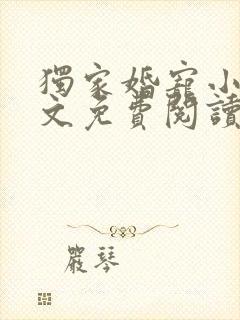 獨家婚寵小
文免費閱讀
嚴琴